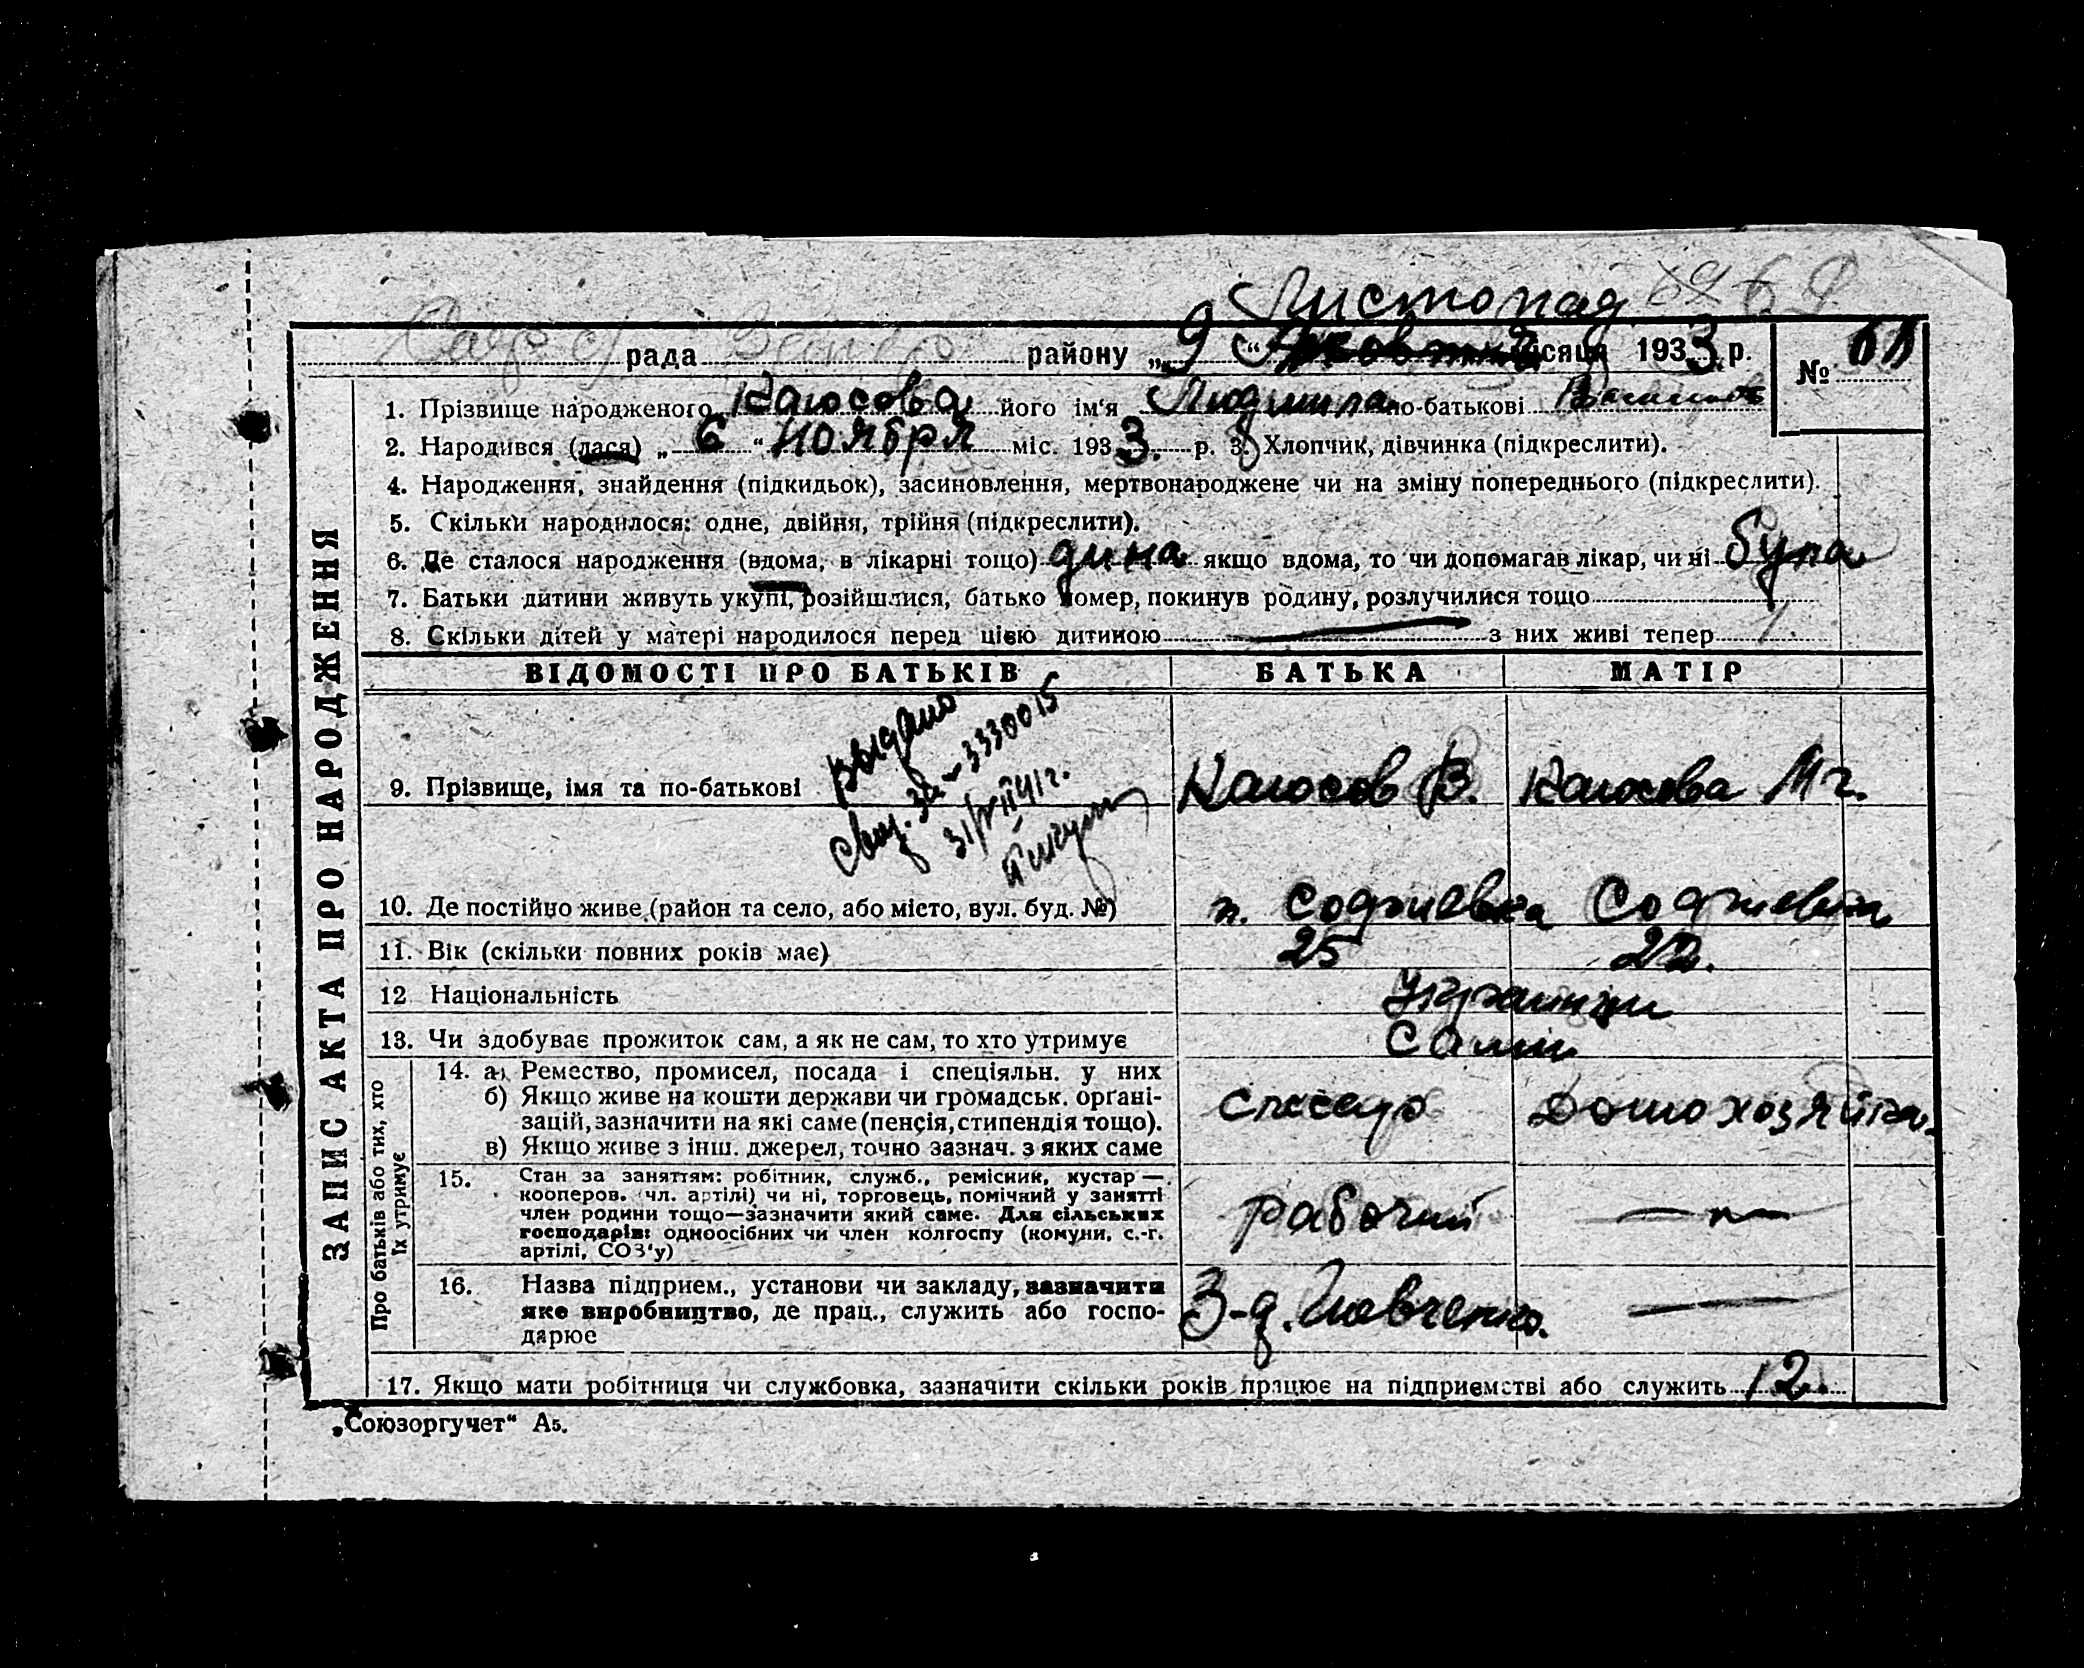 Листопад
рада району „9“ місяця 1933 р. №
1. Прізвище народженого його ім'я Людмила по-батькові
2. Народився (лася) „6“ ноября міс. 1933. р. 3. Хлопчик, дівчинка (підкреслити).
4. Народження, знайдення (підкидьок), засиновлення, мертвонароджене чи на зміну попереднього (підкреслити).
5. Скільки народилося: одне, двійня, трійня (підкреслити).
6. Де сталося народження (вдома, в лікарні тощо) якщо вдома, то чи допомагав лікар, чи ні
7. Батьки дитини живуть укупі, розійшлися, батько помер, покинув родину, розлучилися тощо
8. Скільки дітей у матері народилося перед цією дитиною — з них живі тепер
ЗАПИС АКТА ПРО НАРОДЖЕННЯ
ВІДОМОСТІ ПРО БАТЬКІВ БАТЬКА МАТІР
Выдано
3330015
9. Прізвище, імя та по-батькові
10. Де постійно живе (район та село, або місто, вул. буд. №)
11. Вік (скільки повних років має) 25 22.
12 Національність Украинци
13. Чи здобуває прожиток сам, а як не сам, то хто утримує Сами
Про батьків або тих, хто їх утримує
14. а) Ремество, промисел, посада і спеціяльн. у них
б) Якщо живе на кошти держави чи громадськ. органі-
зацій, зазначити на які саме (пенсія, стипендія тощо).
в) Якщо живе з інш. джерел, точно зазнач. з яких саме
слесарь Домохозяйка.
15. Стан за заняттям: робітник, служб., ремісник, кустар —
кооперов. (чл. артілі) чи ні, торговець, помічний у занятті
член родини тощо—зазначити який саме. Для сільських
господарів: одноосібних чи член колгоспу (комуни, с.-г.
артілі, СОЗ'у)
рабочий —„—
16. Назва підприєм., установи чи закладу, зазначити
яке виробництво, де прац., служить або госпо-
дарює
З-д. —
17. Якщо мати робітниця чи службовка, зазначити скільки років працює на підприємстві або служить
„Союзоргучет“ А5.